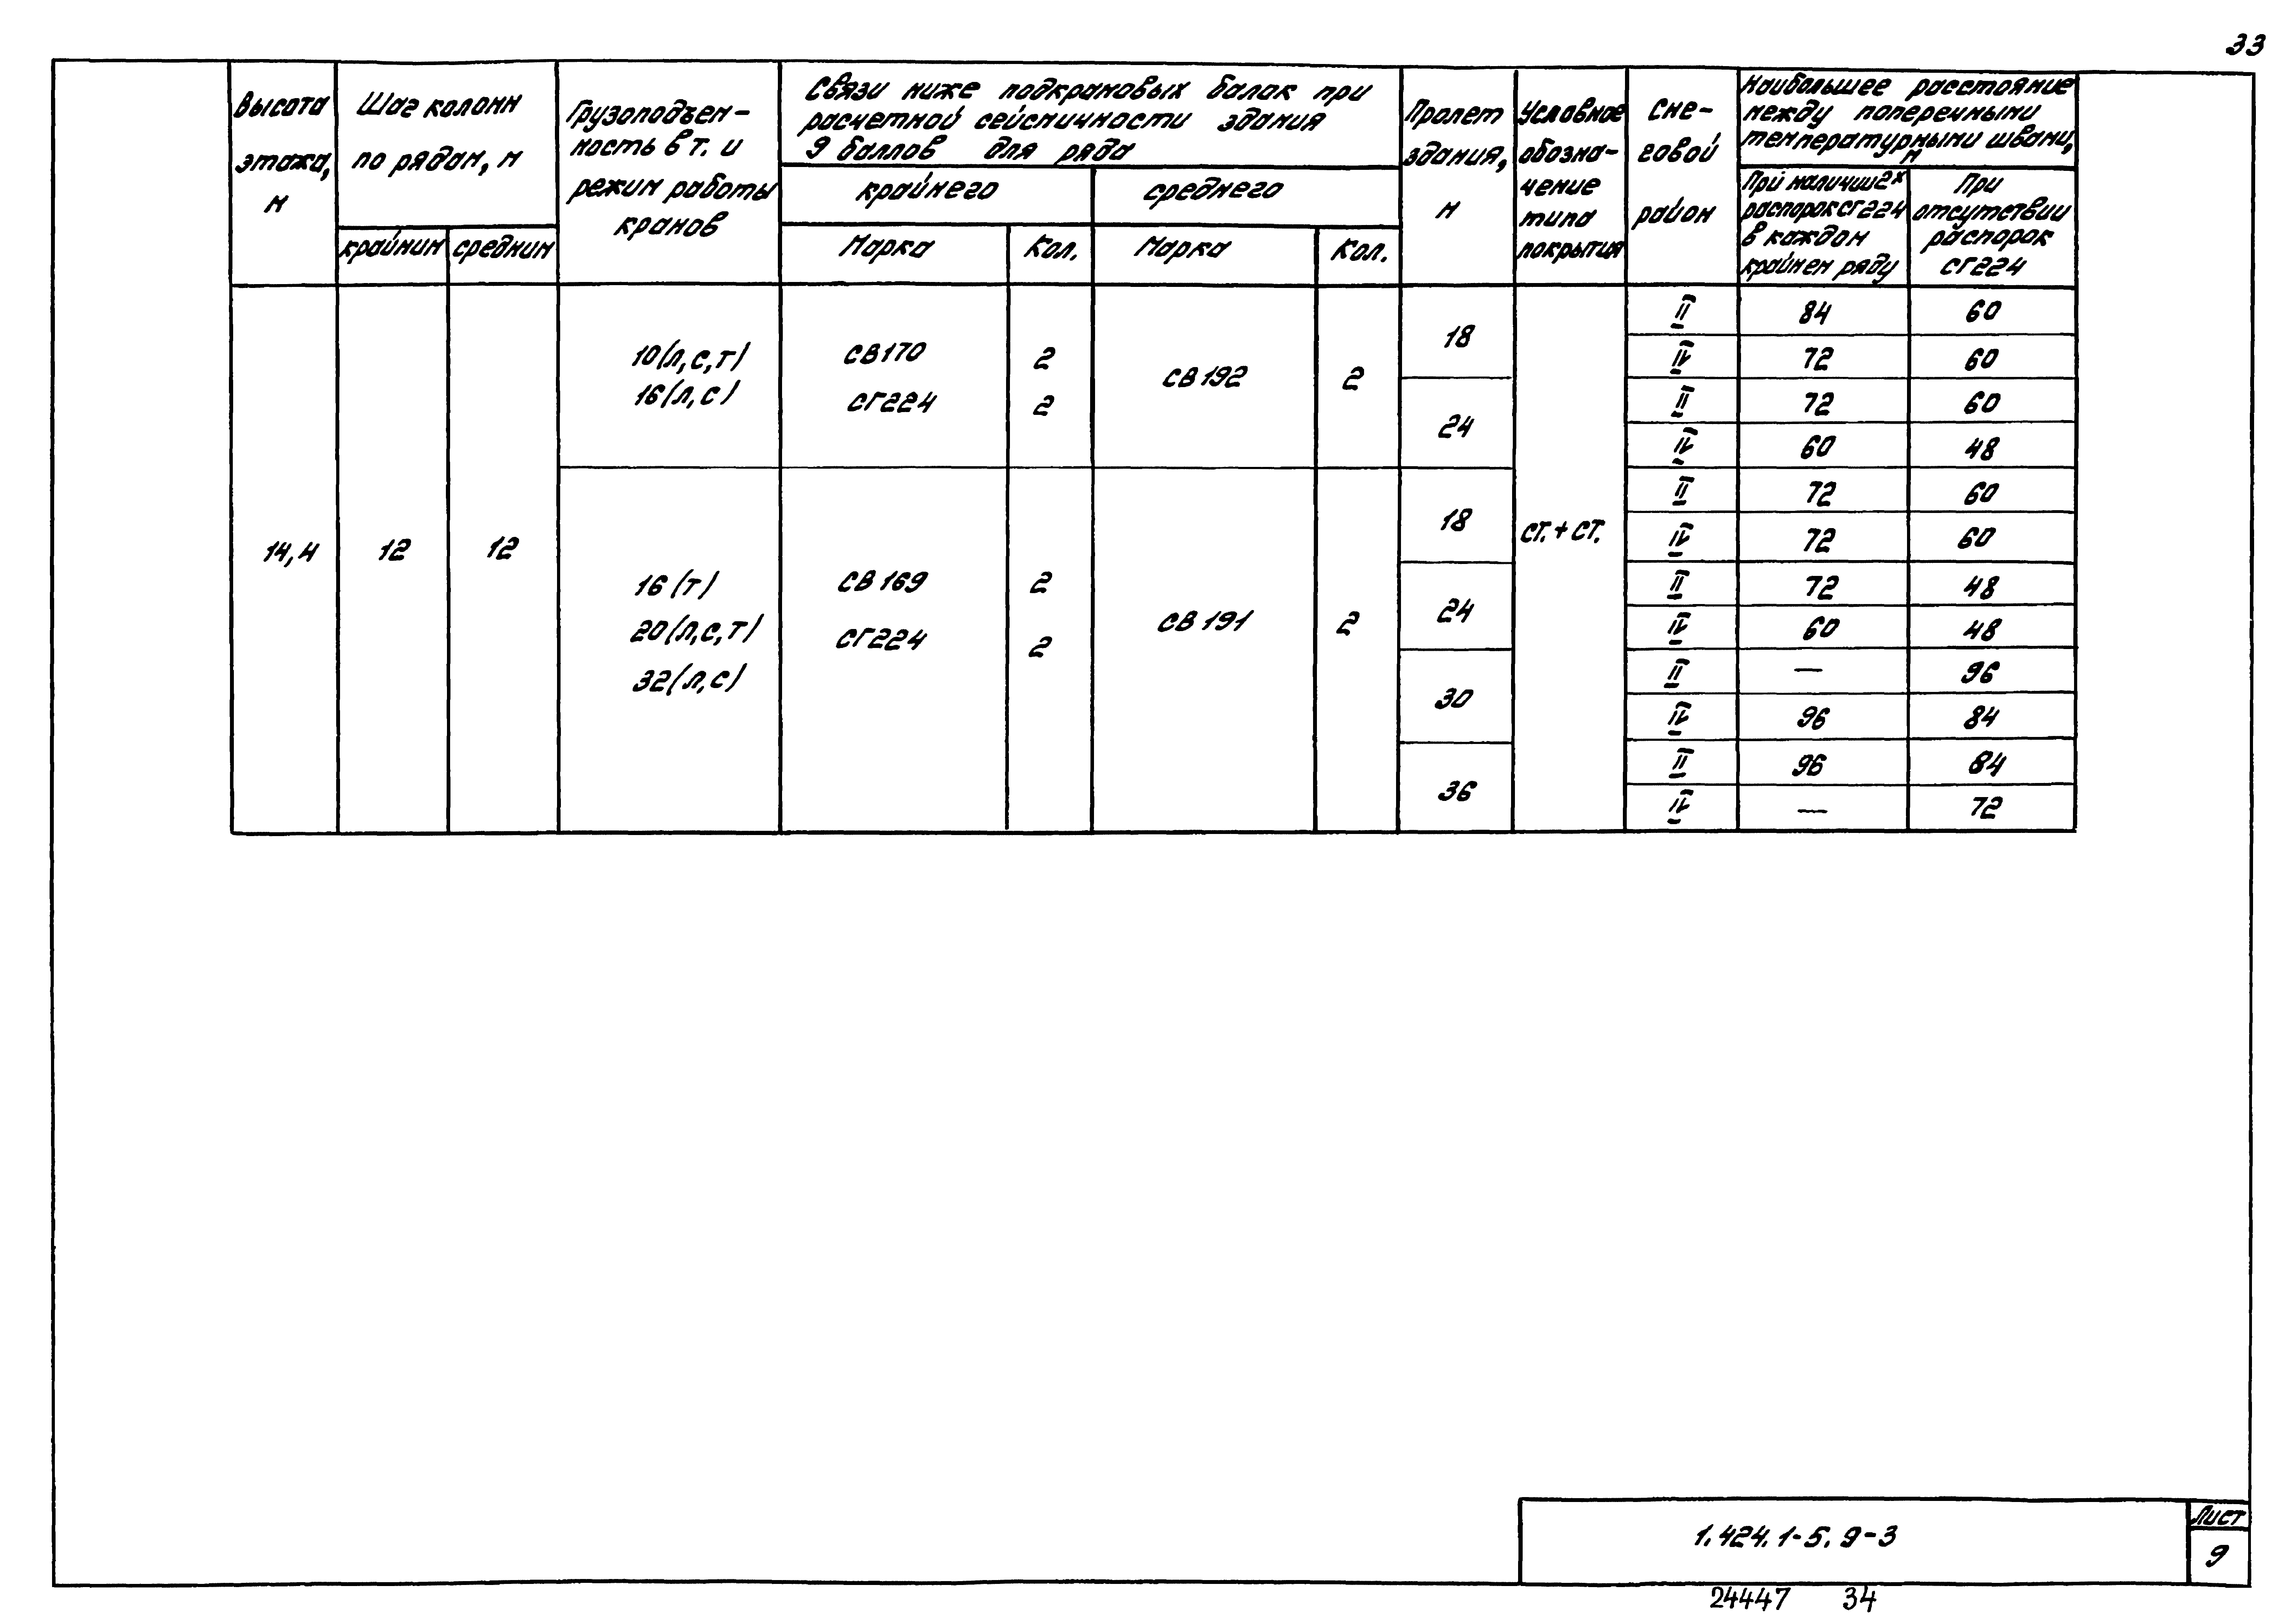 33
Высота этажа, м
Шаг колонн по рядам, м
крайним
средним
Грузоподъем-
ность в т. и
режим работы
кранов
Связи ниже подкрановых балок при
расчетной сейсмичности здания
9 баллов для ряда
крайнего
среднего
Марка
Кол.
Марка
Кол.
Пролет
здания,
м
Условное
обозна-
чение
типа
покрытия
Сне-
говой
район
Наибольшее расстояние
между поперечными
температурными швами,
м
При наличии 2х
распорок СГ224
в каждом
крайнем ряду
При
отсутствии
распорок
СГ224
14,4
12
12
10(л,с,т)
16(л,с)
СВ170
2
СГ224
2
СВ192
2
18
II 84 60
IV 72 60
24
II 72 60
IV 60 48
16(т)
20(л,с,т)
32(л,с)
СВ169
2
СГ224
2
СВ191
2
ст.+ст.
18
II 72 60
IV 72 60
24
II 72 48
IV 60 48
30
II — 96
IV 96 84
36
II 96 84
IV — 72
1.424.1-5.9-3
Лист
9
24447 34